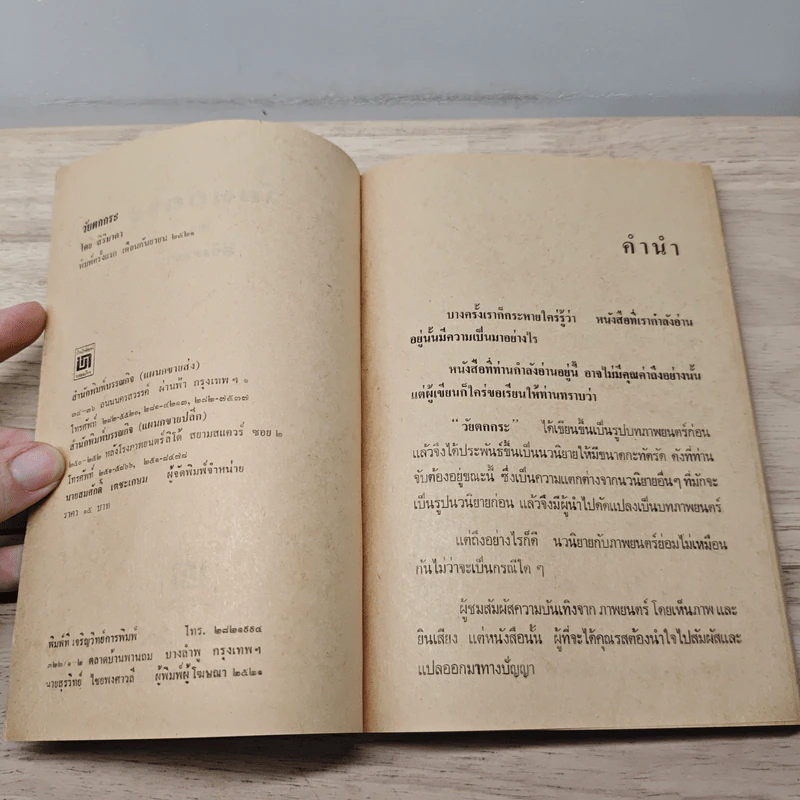 วัยตกกระ
โดย สิริมาดา
พิมพ์ครั้งแรก เดือนกันยายน ๒๕๒๑
สำนักพิมพ์บรรณกิจ (แผนกขายส่ง)
๓๔-๓๖ ถนนนครสวรรค์ ผ่านฟ้า กรุงเทพ ฯ ๑
โทรศัพท์ ๒๘๒-๕๕๒๐, ๒๘๑-๔๒๑๓, ๒๘๒-๗๕๓๗
สำนักพิมพ์บรรณกิจ (แผนกขายปลีก)
๒๕๑-๒๕๒ หลังโรงภาพยนตร์ลิโด้ สยามสแควร์ ซอย ๒
โทรศัพท์ ๒๕๑-๕๘๖๖, ๒๕๑-๘๔๗๘
นายสมศักดิ์ เตชะเกษม ผู้จัดพิมพ์จำหน่าย
ราคา ๑๕ บาท
พิมพ์ที่ เจริญวิทย์การพิมพ์ โทร. ๒๘๒๑๙๙๔
๓๒๒/๑-๒ ตลาดบ้านพานถม บางลำพู กรุงเทพ ฯ
นายสุรวิทย์ ไชยพงศาวลี ผู้พิมพ์ผู้โฆษณา ๒๕๒๑
คำนำ
บางครั้งเราก็กระหายใคร่รู้ว่า หนังสือที่เรากำลังอ่าน
อยู่นั้นมีความเป็นมาอย่างไร
หนังสือที่ท่านกำลังอ่านอยู่นี้ อาจไม่มีคุณค่าถึงอย่างนั้น
แต่ผู้เขียนก็ใคร่ขอเรียนให้ท่านทราบว่า
“วัยตกกระ” ได้เขียนขึ้นเป็นรูปบทภาพยนตร์ก่อน
แล้วจึงได้ประพันธ์ขึ้นเป็นนวนิยายให้มีขนาดกะทัดรัด ดังที่ท่าน
จับต้องอยู่ขณะนี้ ซึ่งเป็นความแตกต่างจากนวนิยายอื่นๆ ที่มักจะ
เป็นรูปนวนิยายก่อน แล้วจึงมีผู้นำไปดัดแปลงเป็นบทภาพยนตร์
แต่ถึงอย่างไรก็ดี นวนิยายกับภาพยนตร์ย่อมไม่เหมือน
กันไม่ว่าจะเป็นกรณีใด ๆ
ผู้ชมสัมผัสความบันเทิงจาก ภาพยนตร์ โดยเห็นภาพ และ
ยินเสียง แต่หนังสือนั้น ผู้ที่จะได้คุณรสต้องนำใจไปสัมผัสและ
แปลออกมาทางปัญญา